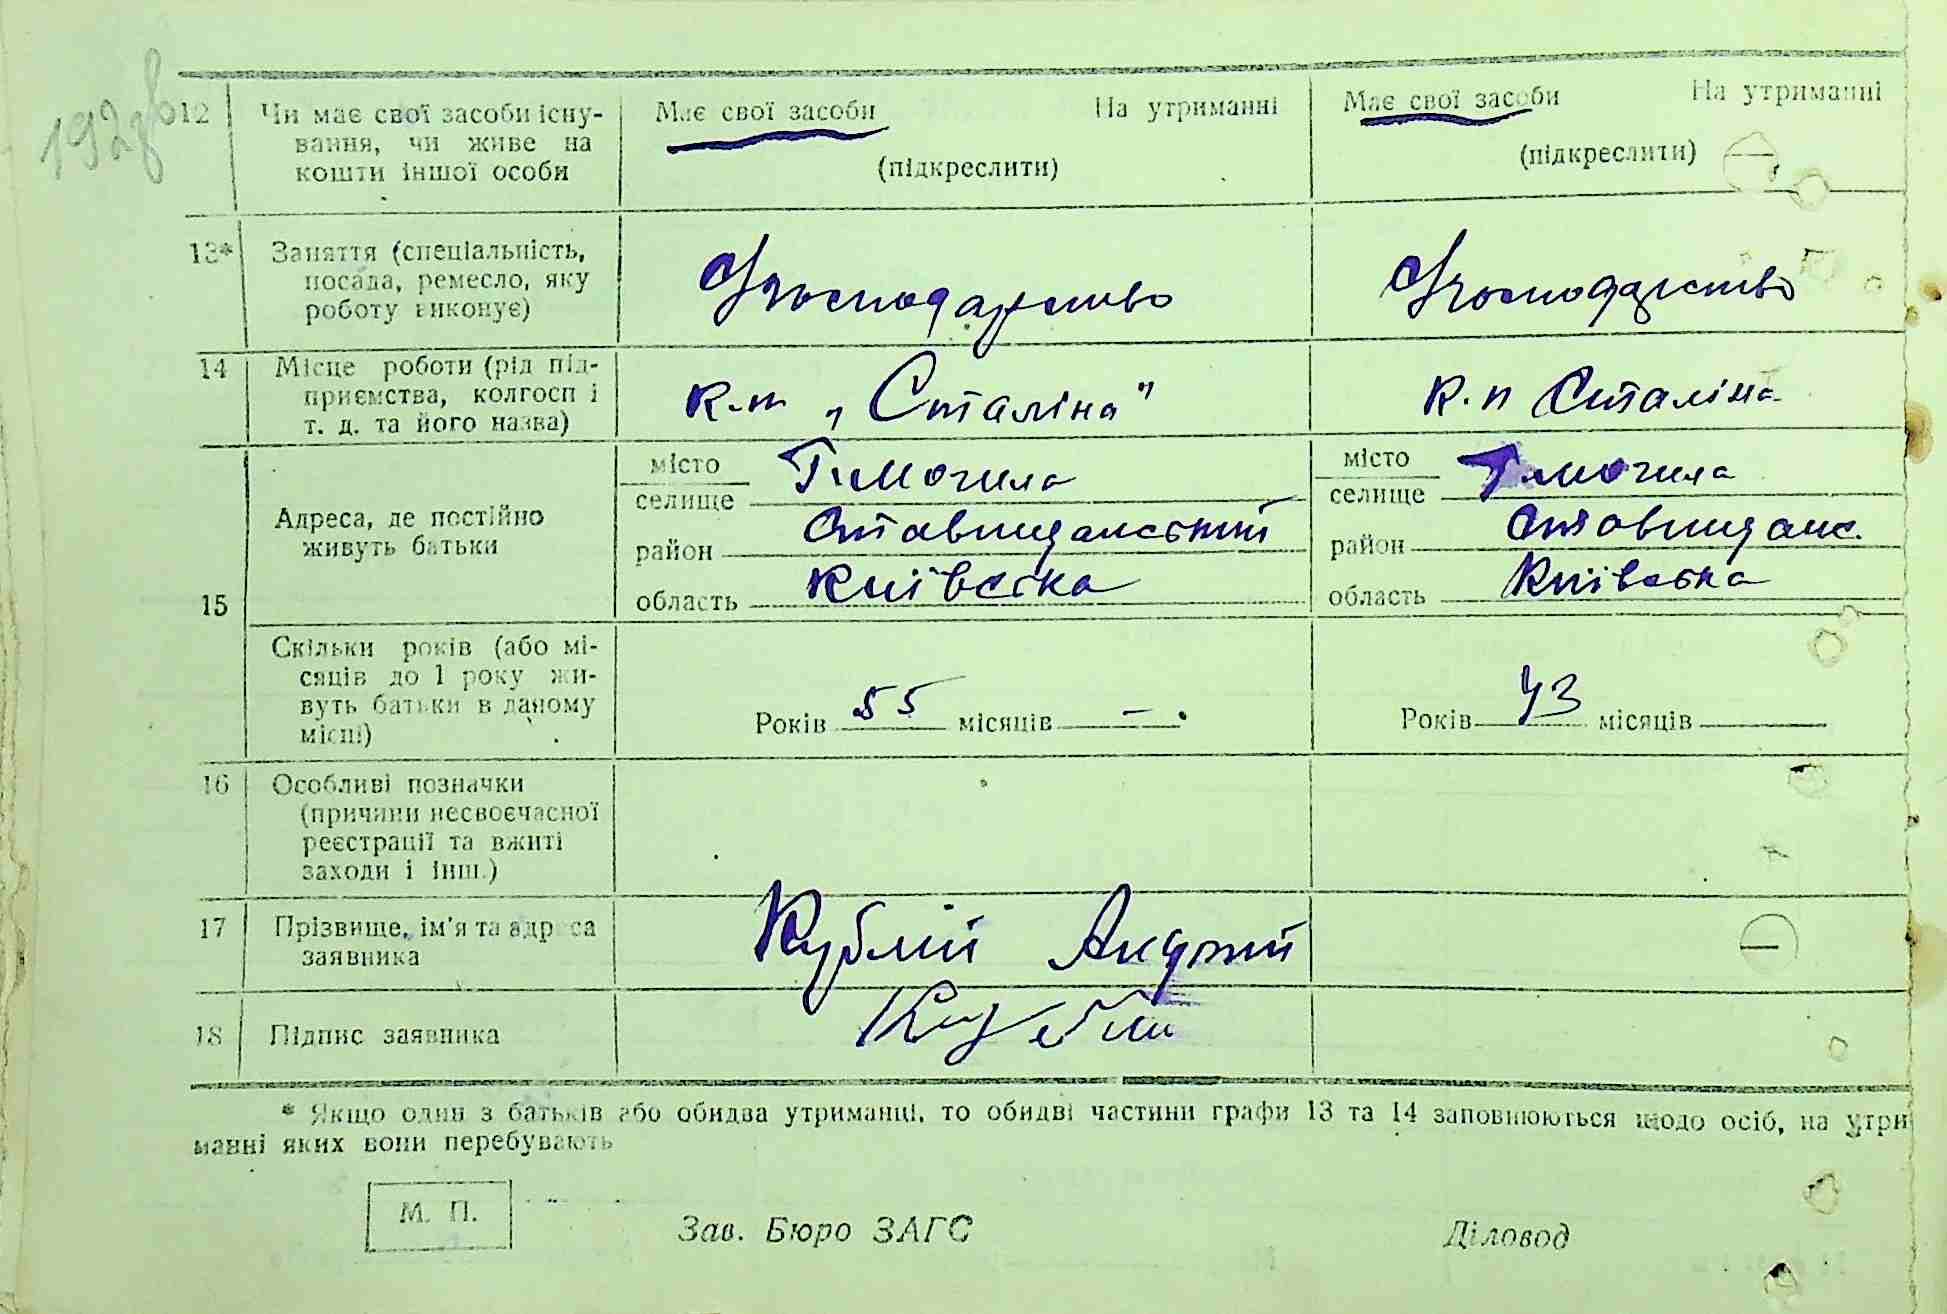 192зв
12 Чи має свої засоби існу- Має свої засоби На утриманні Має свої засоби На утриманні
вання, чи живе на
кошти іншої особи (підкреслити) (підкреслити)
13* Заняття (спеціальність,
посада, ремесло, яку Господарство Господарство
роботу виконує)
14 Місце роботи (рід під-
приємства, колгосп і к.п „Сталіна" к.п Сталіна
т. д. та його назва)
15 Адреса, де постійно
живуть батьки
місто Г.могила місто Г.могила
селище селище
район Ставищанський район Ставищанс.
область Київська область Київська
Скільки років (або мі-
сяців до 1 року жи-
вуть батьки в даному Років 55 місяців — . Років 43 місяців
місці)
16 Особливі позначки
(причини несвоєчасної
реєстрації та вжиті
заходи і інш.)
17 Прізвище, ім'я та адреса Кублій Андрій
заявника
18 Підпис заявника
* Якщо один з батьків або обидва утриманці, то обидві частини графи 13 та 14 заповнюються щодо осіб, на утри
манні яких вони перебувають
М. П.
Зав. Бюро ЗАГС Діловод